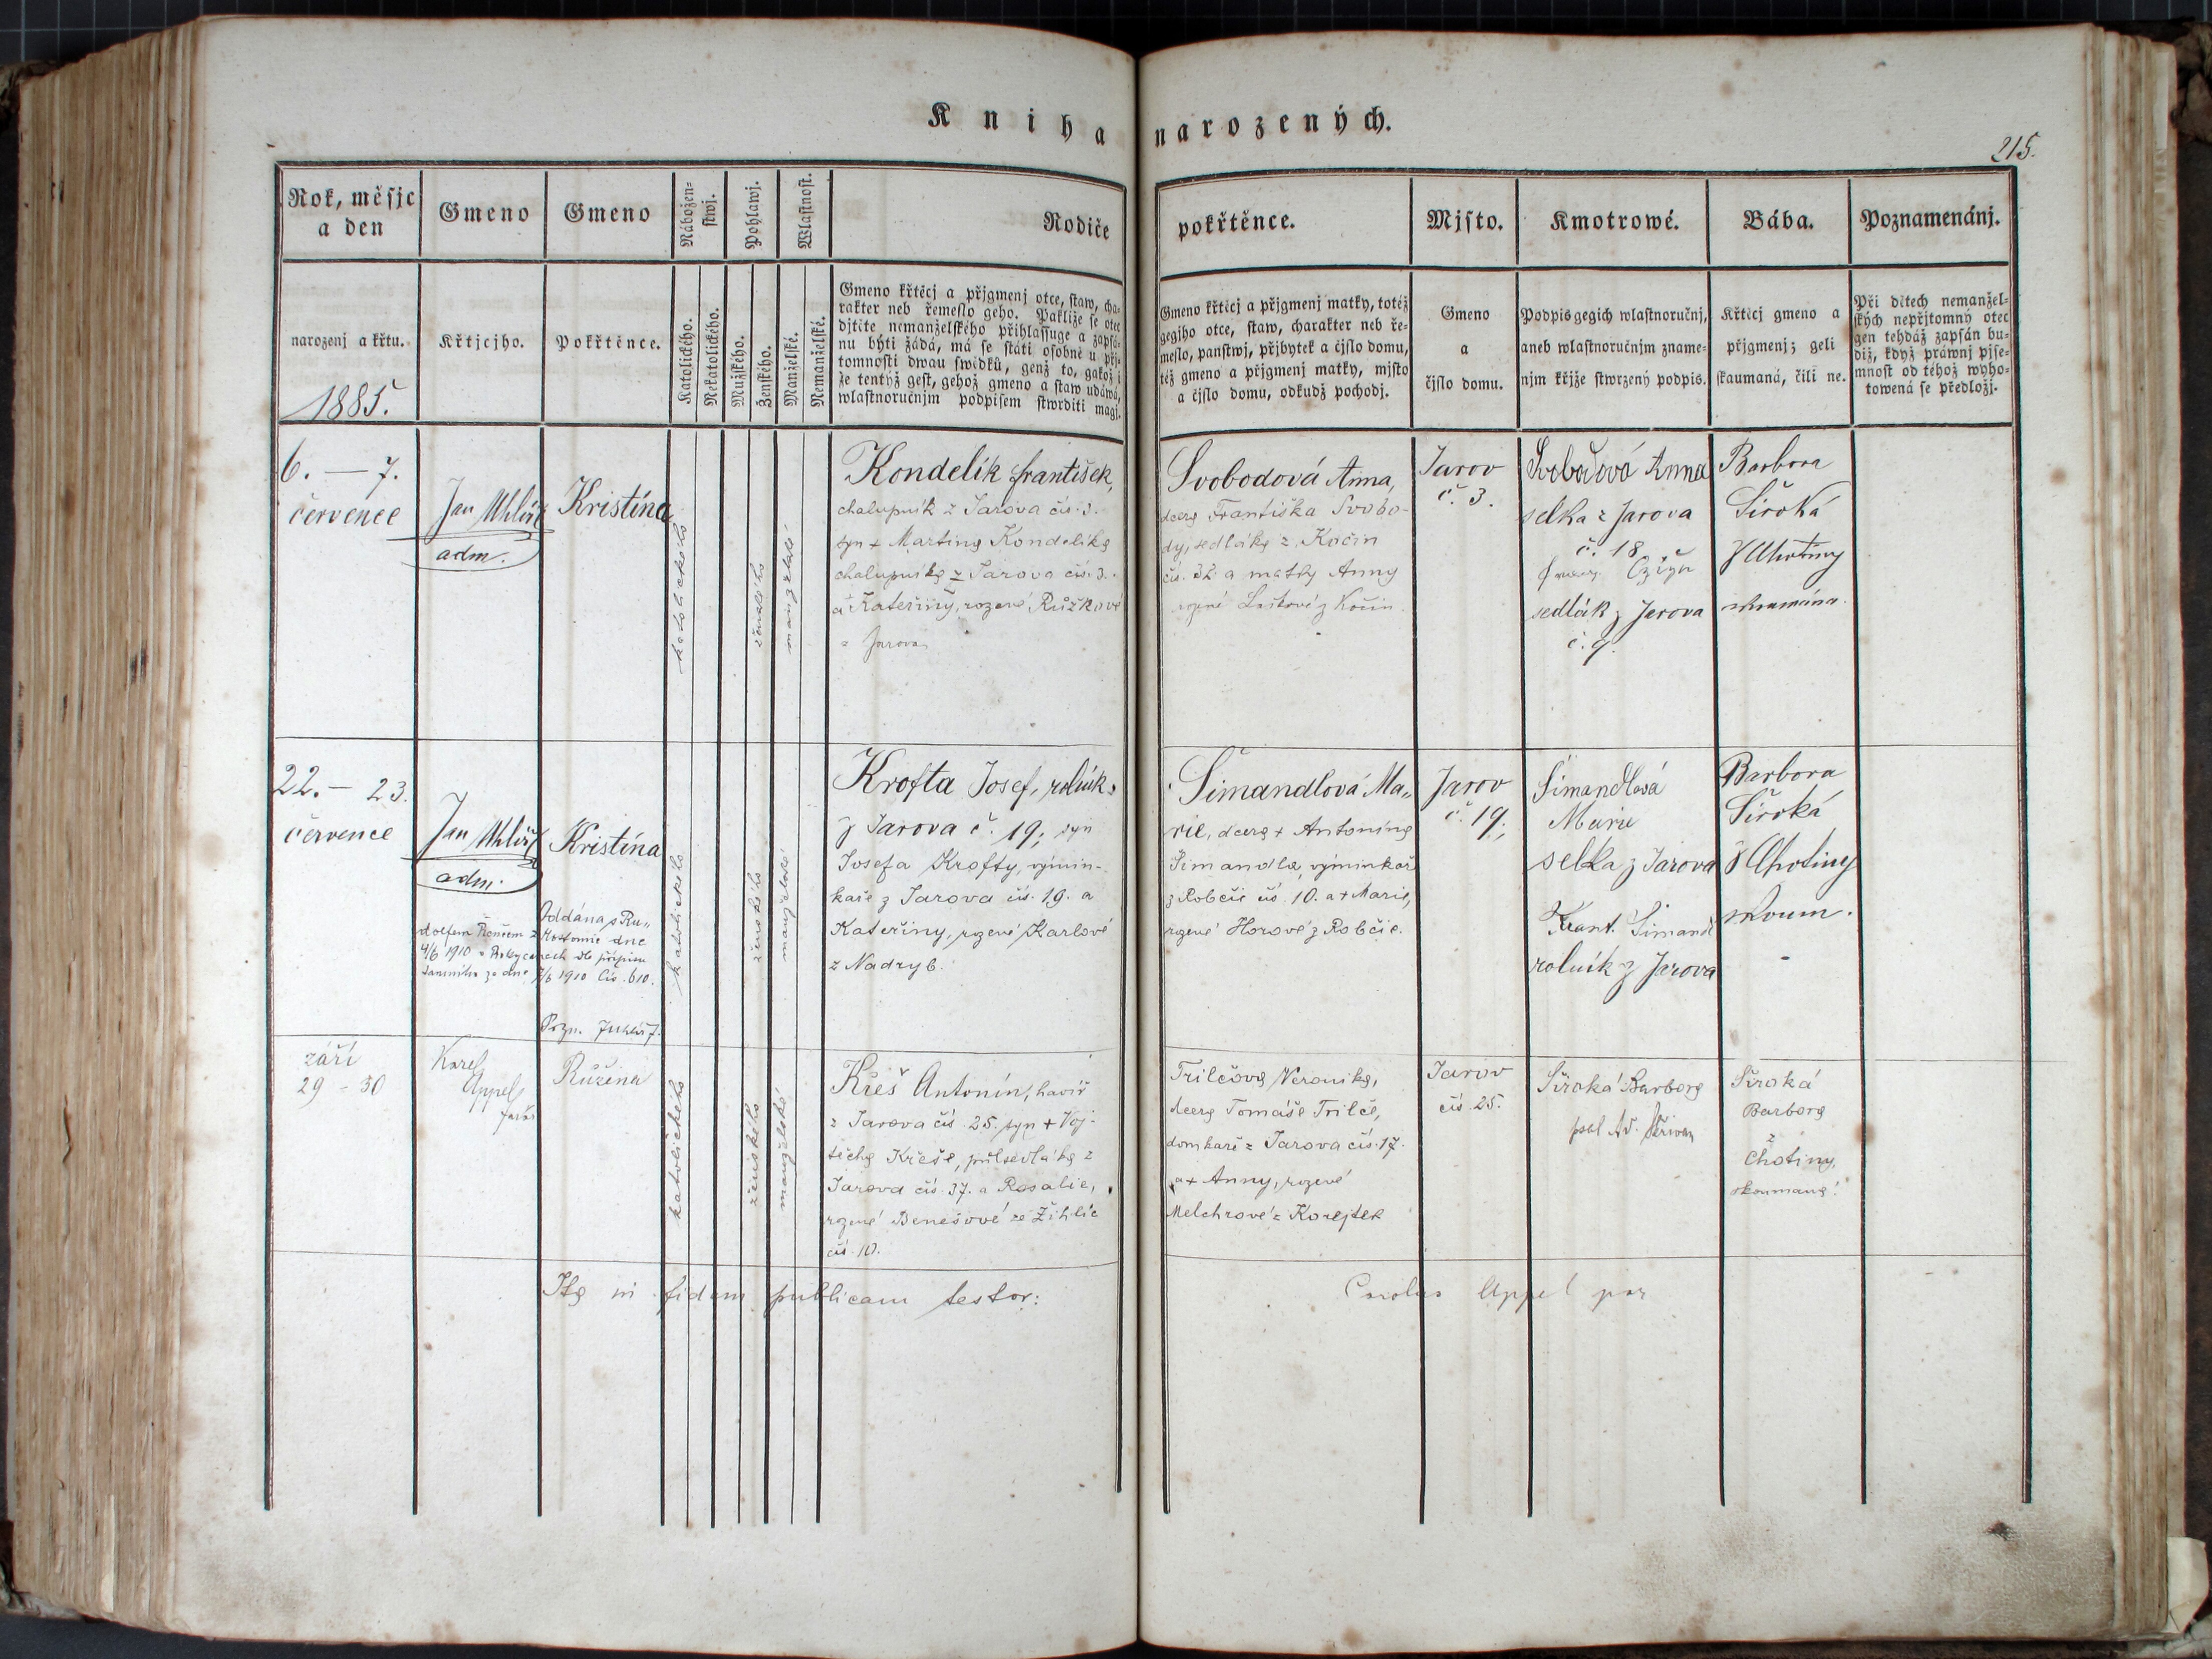 Kniha narozených.
215.
Rok, měsjc
a den
Gmeno
Gmeno
Nábožen-
stwj.
Pohlawj.
Wlastnost.
Rodiče
pokřtěnce.
Mjsto.
Kmotrowé.
Bába.
Poznamenánj.
narozenj a křtu.
1885.
Křtjcjho.
Pokřtěnce.
Katolického.
Nekatolického.
Mužského.
Ženského.
Manželské.
Nemanželské.
Gmeno křtěcj a přjgmenj otce, staw, cha-
rakter neb řemeslo geho. Pakliže se otec
djtěte nemanželského přihlassuge a zapsá-
nu býti žádá, má se státi osobně u přj-
tomnosti dwau swědků, genž to, gakož i
že tentýž gest, gehož gmeno a staw udáwá,
wlastnoručnjm podpisem stwrditi magj.
Gmeno křtěcj a přjgmenj matky, totéž
gegjho otce, staw, charakter neb ře-
meslo, panstwj, přjbytek a čjslo domu,
též gmeno a přjgmenj matky, mjsto
a čjslo domu, odkudž pocházj.
Gmeno
a
čjslo domu.
Podpis gegich wlastnoručnj,
aneb wlastnoručnjm zname-
njm křjže stwrzený podpis.
Křtěcj gmeno a
přjgmenj; geli
skaumaná, čili ne.
Při dětech nemanžel-
ských nepřjtomný otec
gen tehdáž zapsán bu-
diž, když práwnj pjse-
mnost od téhož wyho-
towená se předložj.
6. — 7.
července
Jan Uhlíř
adm.
Kristína
katolického
ženského
manželské
Kondelík František,
chalupník z Jarova čís. 3.
syn + Martina Kondelíka
chalupníka z Jarova čís. 3.
a Kateřiny, rozené Růžkové
z Jarova
Svobodová Anna,
dcera Františka Svobo-
dy, sedláka z Kočín
čís. 32 a matky Anny
rozené z Kočín.
Jarov
č. 3.
Svobodová Anna
selka z Jarova
č. 18
sedlák z Jarova
č. 9.
Barbora
Široká
z Chotiny
zkoumána.
22. — 23.
července
Jan Uhlíř
adm.
Kristína
Oddána s Ru-
dolfem z Hostomic dne
4/6 1910 v Rokycanech dle přípisu
tamního ze dne 7/6 1910 Čís. 610.
Pozn.
katolického
ženského
manželské
Krofta Josef, rolník
z Jarova č. 19; syn
Josefa Krofty, výmin-
káře z Jarova čís. 19. a
Kateřiny, rozené Karlové
z Nadryb.
Šimandlová Ma-
rie, dcera + Antonína
Šimandla, výminkáře
z Robčic čís. 10. a + Marie,
rozené Horové z Robčic.
Jarov
č. 19.
Šimandlová
Marie
selka z Jarova
Frant. Šimandl
rolník z Jarova
Barbora
Široká
z Chotiny
zkoum.
září
29 - 30
Karel
Appel
farář
Růžena
katolického
ženského
manželské
Kreš Antonín, havíř
z Jarova čís. 25. syn + Voj-
těcha Kreše, půlsedláka z
Jarova čís. 37. a Rosalie,
rozené Benešové ze Žihlic
čís. 10.
Trilčova Veronika,
dcera Tomáše Trilče,
domkaře z Jarova čís. 17.
a + Anny, rozené
Melchrové z Korejtek
Jarov
čís. 25.
Široká Barbora
Široká
Barbora
z
Chotiny,
zkoumaná.
Ita in fidem publicam testor: Carolus Appel par